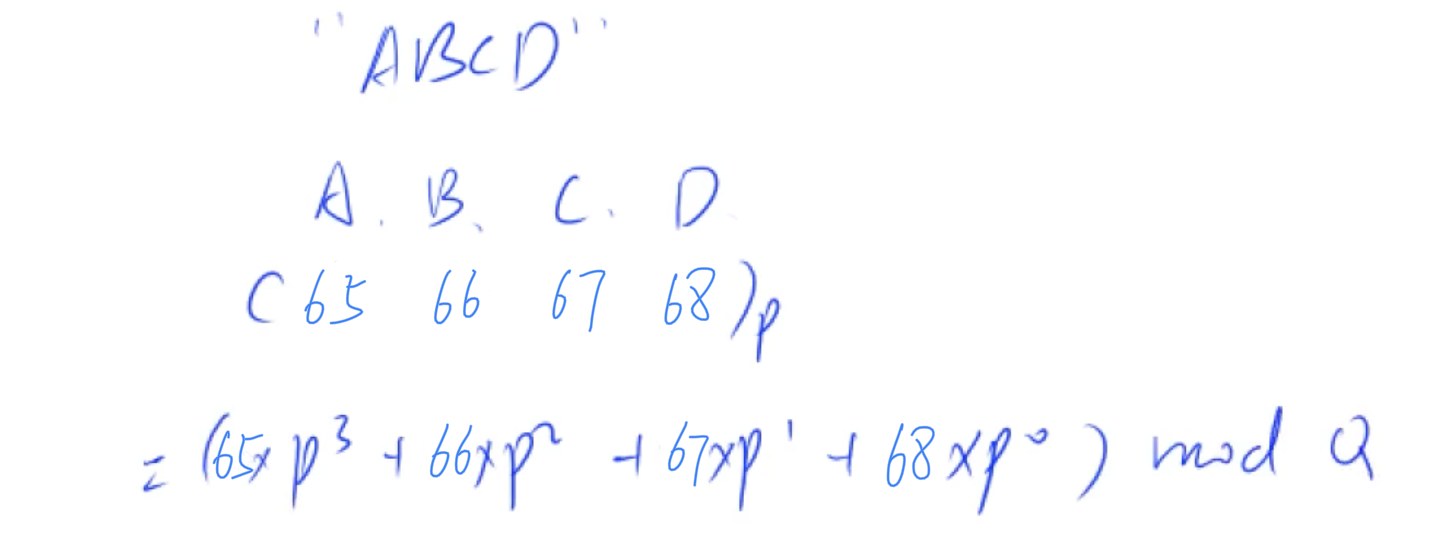 "ABCD"
A. B、 C. D
(65 66 67 68)ₚ
= (65× p³ + 66×p² + 67×p¹ + 68×p⁰) mod Q